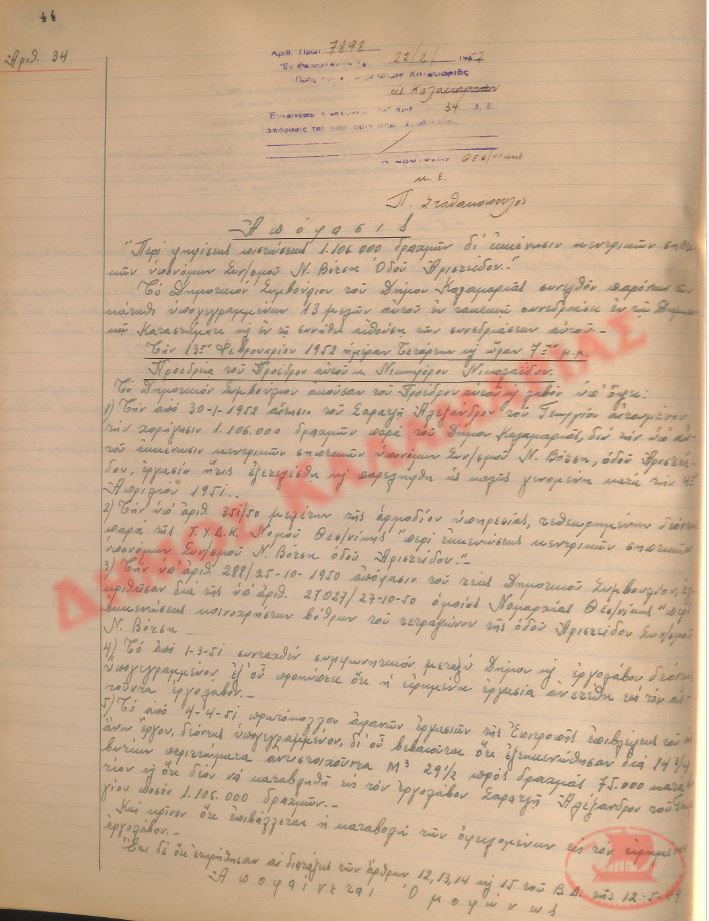 44
Ἀριθ. 34
Ἀριθ. Πρωτ. 7898
Ἐν Θεσσαλονίκῃ 22/2/1952
Καλαμαριᾶς
34
Θεσ/νίκης
κ. ἐ.
Π. Σταθακόπουλος
Ἀπόφασις
"Περὶ ψηφίσεως πιστώσεως 1.106.000 δραχμῶν δι' ἐκκένωσιν κεντρικῶν σηπτι-
κῶν ὑπονόμων Συν/σμοῦ Ν. Βότση Ὁδοῦ Ἀριστείδου."
Τὸ Δημοτικὸν Συμβούλιον τοῦ Δήμου Καλαμαριᾶς συνελθὸν παρόντων τῶν
κάτωθι ὑπογεγραμμένων 13 μελῶν αὐτοῦ ἐν τακτικῇ συνεδριάσει ἐν τῷ Δημοτι-
κῷ Καταστήματι κ ἐν τῇ συνήθει αἰθούσῃ τῶν συνεδριάσεων αὐτοῦ.-
Τὴν 13ην Φεβρουαρίου 1952 ἡμέραν Τετάρτην κ ὥραν 7ην μ.μ.
Προεδρίᾳ τοῦ Προέδρου αὐτοῦ κ. Νικηφόρου Νικολαΐδου.
Τὸ Δημοτικὸν Συμβούλιον ἀκοῦσαν τοῦ Προέδρου αὐτοῦ κ λαβὸν ὑπ' ὄψει:
1) Τὴν ἀπὸ 30-1-1952 αἴτησιν τοῦ Σαρατζῆ Ἀλεξάνδρου τοῦ Γεωργίου αἰτουμένου
τὴν χορήγησιν 1.106.000 δραχμῶν παρὰ τοῦ Δήμου Καλαμαριᾶς, διὰ τὴν ὑπ' αὐ-
τοῦ ἐκκένωσιν κεντρικῶν σηπτικῶν ὑπονόμων Συν/σμοῦ Ν. Βότση, ὁδοῦ Ἀριστεί-
δου, ἐργασία ἥτις ἐξετελέσθη κ παρελήφθη ὡς καλῶς γενομένη κατὰ τὴν 4ην
Ἀπριλίου 1951..
2) Τὴν ὑπ' ἀριθ. 351/50 μελέτην τῆς ἁρμοδίου ὑπηρεσίας, τεθεωρημένην δεόντως
παρὰ τῆς Τ.Υ.Δ.Κ. Νομοῦ Θεσ/νίκης "περὶ ἐκκενώσεως κεντρικῶν σηπτικῶν
ὑπονόμων Συν/σμοῦ Ν. Βότση ὁδοῦ Ἀριστείδου."-
3) Τὴν ὑπ' ἀριθ. 288/25-10-1950 ἀπόφασιν τοῦ τέως Δημοτικοῦ Συμβουλίου, ἐγ-
κριθεῖσαν διὰ τῆς ὑπ' ἀριθ. 27027/27-10-50 ὁμοίας Νομαρχίας Θεσ/νίκης "περὶ
ἐκκενώσεως κοινοχρήστων βόθρων τοῦ τετραγώνου τῆς ὁδοῦ Ἀριστείδου Συν/σμοῦ
Ν. Βότση
4) Τὸ ἀπὸ 1-3-51 συνταχθὲν συμφωνητικὸν μεταξὺ Δήμου κ ἐργολάβου δεόντως
ὑπογεγραμμένον, ἐξ' οὗ προκύπτει ὅτι ἡ εἰρημένη ἐργασία ἀνετέθη εἰς τὸν αἰ-
τοῦντα ἐργολάβον.-
5) Τὸ ἀπὸ 4-4-51 πρωτόκολλον ἀφανῶν ἐργασιῶν τῆς Ἐπιτροπῆς ἐπιβλέψεως τοῦ
ἄνω ἔργου, δεόντως ὑπογεγραμμένον, δι' οὗ βεβαιοῦται ὅτι ἐξεκκενώθησαν διὰ 14 3/4
βυτίων περιττώματα ἀντιστοιχοῦντα Μ³ 29 1/2 πρὸς δραχμὰς 75.000 κατὰ βυ-
τίον κ ὅτι δέον νὰ καταβληθῇ εἰς τὸν ἐργολάβον Σαρατζῆ Ἀλέξανδρον τοῦ Γεωρ-
γίου ποσὸν 1.106.000 δραχμῶν.-
Καὶ κρῖνον ὅτι ἐπιβάλλεται ἡ καταβολὴ τῶν ὀφειλομένων εἰς τὸν εἰρημένον
ἐργολάβον.-
Ἔτι δὲ ὅτι ἐτηρήθησαν αἱ διατάξεις τῶν ἄρθρων 12, 13, 14 κ 15 τοῦ Β.Δ. τῆς 12-5-49
Ἀποφαίνεται Ὁμοφώνως
ΔΗΜΟΣ ΚΑΛΑΜΑΡΙΑΣ